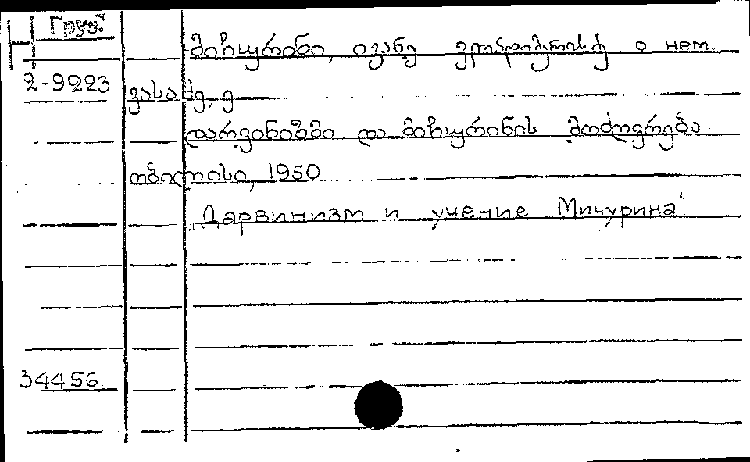 Груз.
მიჩურინი, ივანე ვლადიმერისძე о нем.
2-9223
ვასაძე, ე
დარვინიზმი და მიჩურინის მოძღვრება
თბილისი, 1950
Дарвинизм и учение Мичурина
34456